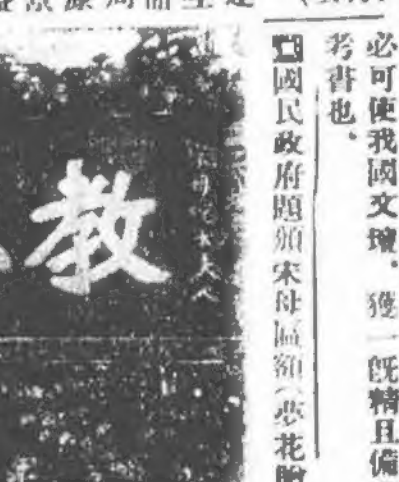 必可使我國文壇、獲一既精且備
考書也、
國民政府題頒宋母匾額(夢花贈
教